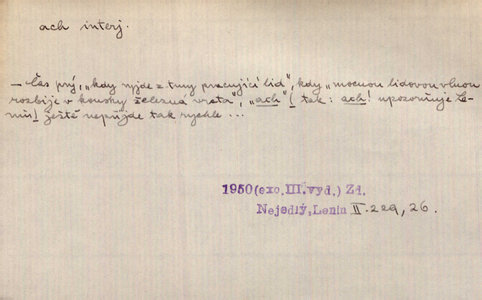 ach interj.
— Čas prý, „kdy vyjde z tmy pracující lid", kdy „mocnou lidovou vlnou
rozbije v kousky železná vrata", „ach" [tak: ach! upozorňuje Le-
nin] ještě nepřijde tak rychle ...
1950 (exc.III.vyd.) Zd.
Nejedlý, Lenin II. 229, 26.